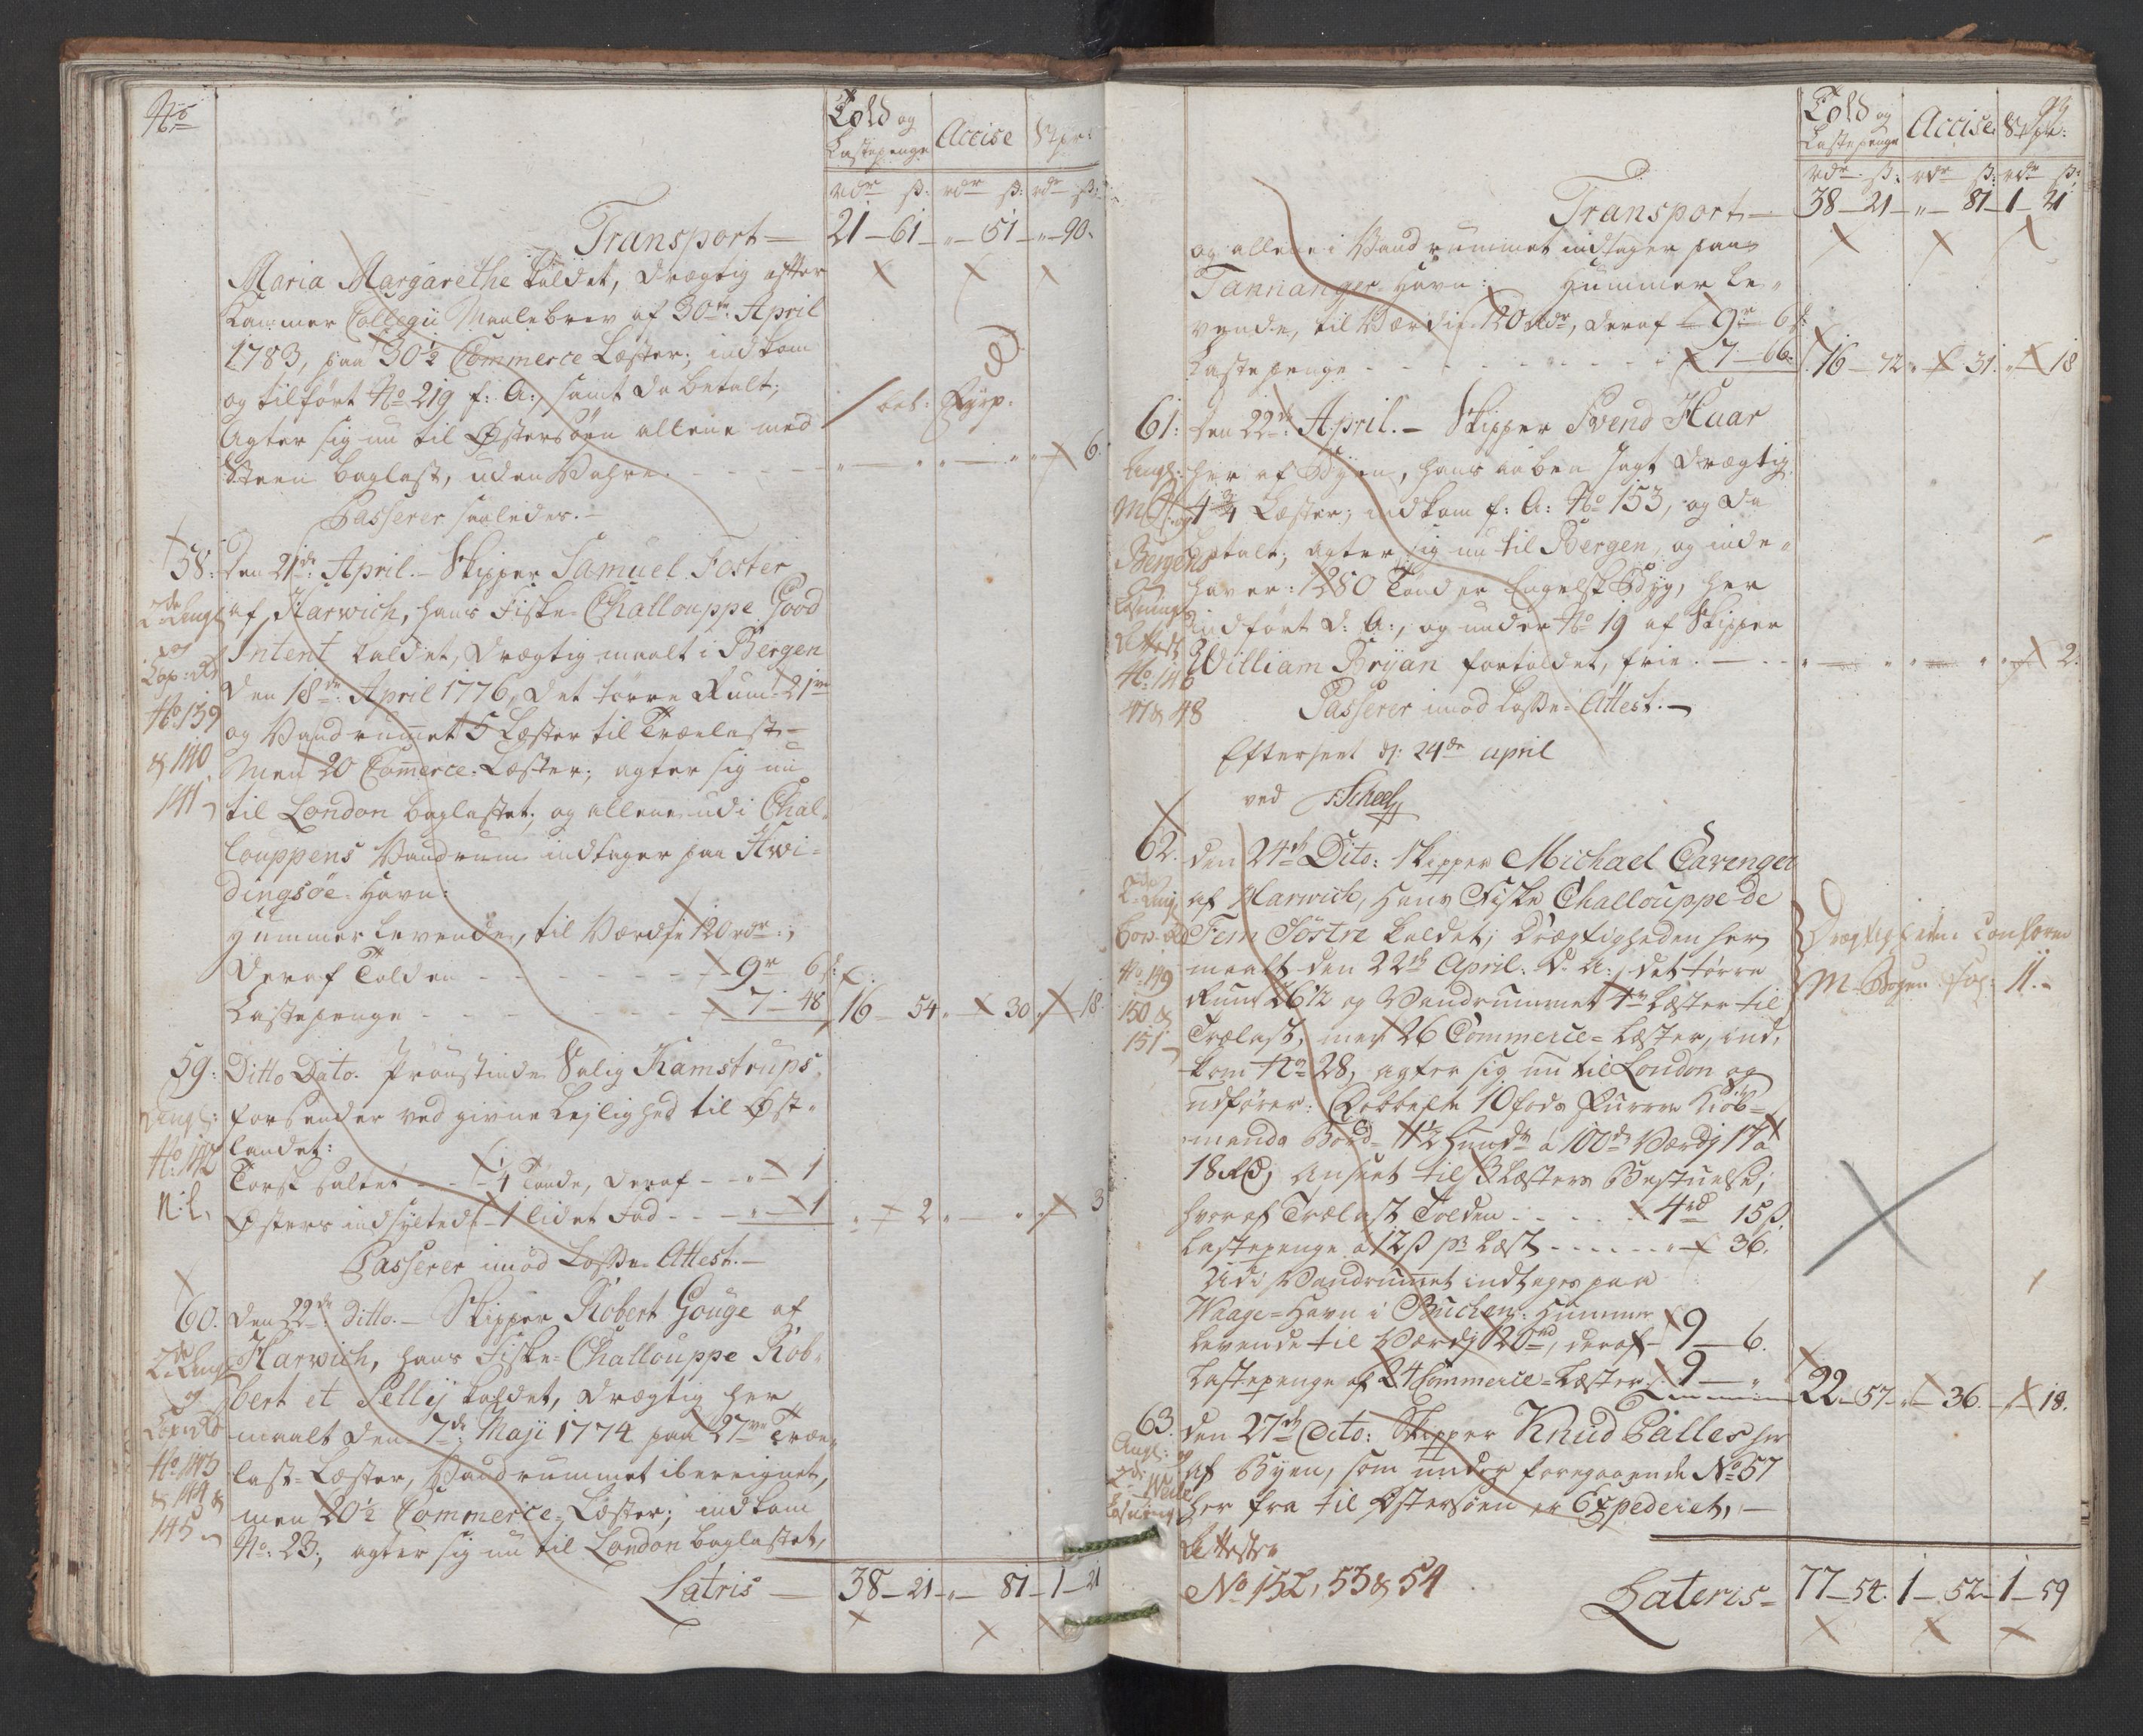 No
Told og Lastepenge
Accise
rdr ß: rdr ß: rdr ß:
Transport — 21 — 61 — " — 51 — " — 90.
Maria Margarethe kaldet, drægtig efter
Cammer Collegii Maalebrev af 30te April
1783, paa 30½ Commerce Læster; indkom
og tilført No 219 f: A:, samt da betalt;
Agter sig nu til Østersøen allene med
Steen baglast, uden Vahre. 6.
Passerer saaledes. —
58: Den 21de April. — Skipper Samuel Foster
af Harwich, hans Fiske-Challouppe Good
Intent kaldet, drægtig maalt i Bergen
den 18de April 1776, det tørre Rum 21
og Vandrummet 5 Læster til Trælast
men 20 Comerce-Læster; agter sig nu
til London baglastet, og allene udi Chal-
louppens Vandrum indtager paa Hwi-
dingsøe-Havn:
Hummer levende, til Værdie 120 rdr.,
deraf Tolden 9 r 6 ß
Lastepenge 7 — 48 16 — 54 " 30 " 18
No 139
& 140
141
59: Ditto Dato. Proustinde Salig Kamstrups,
forsender ved givne Lejlighed til Øst-
landet:
Torsk saltet ¼ Tønde, deraf " 1
Østers indsyltede 1 lidet Fad " 1 " 2 " 3
Passerer imod Losse-Attest. —
No 142
60. Den 22de Ditto. — Skipper Robert Gouge af
Harwich, hans Fiske-Challouppe Rob-
bert et Sellij kaldet, drægtig her
maalt den 7de Maji 1774 paa 27 Træ-
last-Læster, Vandrummet ibereignet,
men 20½ Commerce-Læster; indkom
No: 23; agter sig nu til London baglastet,
No 143
& 144 &
145
Latris — 38 — 21 — " — 81 — 1 — 21
Told og Lastepenge
Accise
rdr ß: rdr ß: rdr ß:
Transport — 38 — 21 — " — 81 — 1 — 21
og allene i Vandrummet indtager paa
Tannanger-Havn: Hummer le-
vende, til Værdie 120 Rdr, deraf 9 r 6 ß
Lastepenge 7 — 66. 16 — 72 " 31. " 18
61: Den 22de April. — Skipper Svend Haar
her af Byen, hans aaben Jagt drægtig
4¾ Læster; indkom f: A: No 153, og da
betalt; agter sig nu til Bergen, og inde-
haver: 280 Tønder Engelsk Byg, her
indført d: A:, og under No 19 af Skipper
William Bryan fortoldet, frie. 2.
Passerer imod Losse-Attest. —
Bergens
No 146
47 & 48
Efterseet d: 24de april
ved Scheel
62. Den 24de Dito: Skipper Michael Cavenger
af Harwich, Hans Fiske Challouppe De
Fem Söstre kaldet; drægtigheden her
maalt den 22de April: d: A:, det tørre
Rum 26½ og Vandrummet 4 Læster til
Trælast, men 26 Commerce-Læster, ind-
kom No 28, agter sig nu til London og
udfører: Dobbelte 10 fods Furrue Kiøb-
mands Bord 1½ Hundr à 100de Værdj 17 a
18 Rd, Anseet til 3 Læsters Bestuelse;
hvoraf Trælast Tolden 4 rd 15 ß.
Lastepenge a 12 ß pr Læst " 36.
Udi Vandrummet indtages paa
Waage-Havn i Buchen: Hummer
levende til Værdj 120 rd, deraf 9 — 6.
Lastepenge af 24 Commerce-Læster 9 — " 22 — 57 — " 36. — " 18.
No 149
150 &
151
Drægtigheden Conform
M. Bogen fol: 11. —
63. Den 27de Dito: Skipper Knud Palles her
af Byen, som under foregaaende No 57
her fra til Østersöen er Expederet, —
Attester
No 152, 53 & 54
Lateris — 77 — 54. 1 — 52 — 1 — 59